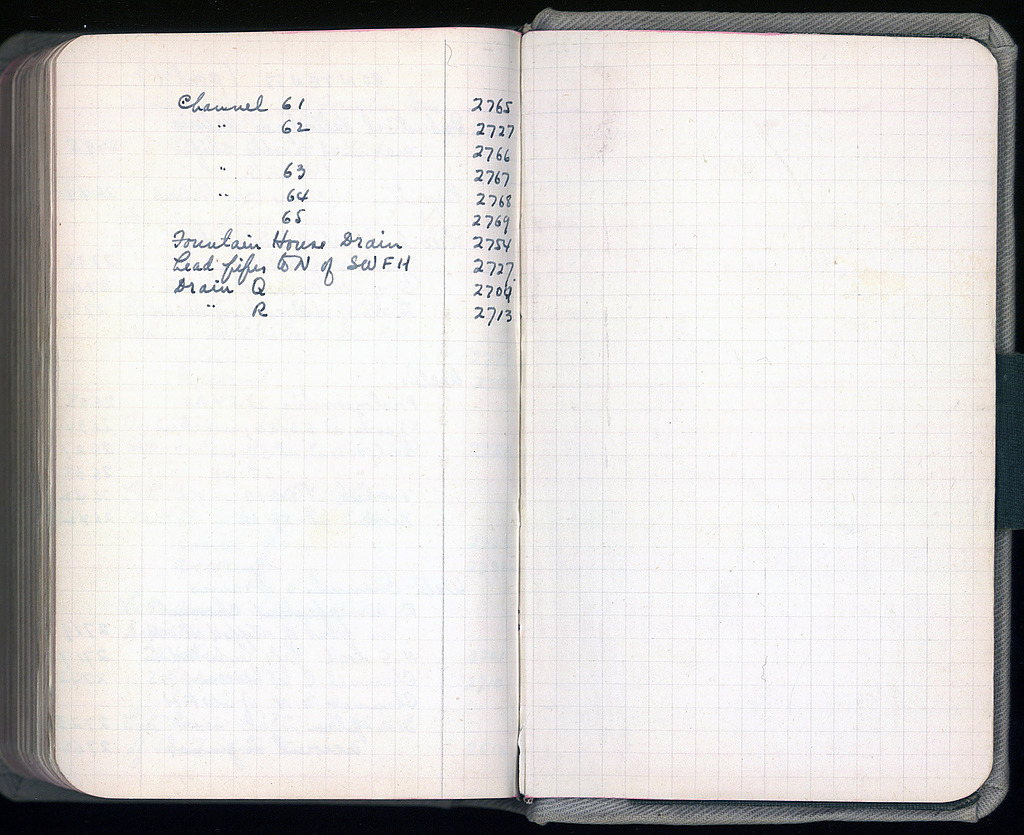 Channel 61 2765
" 62 2727
2766
" 63 2767
" 64 2768
65 2769
Fountain House Drain 2754
Lead pipes to N of SWFH 2727
Drain Q 2709
" R 2713